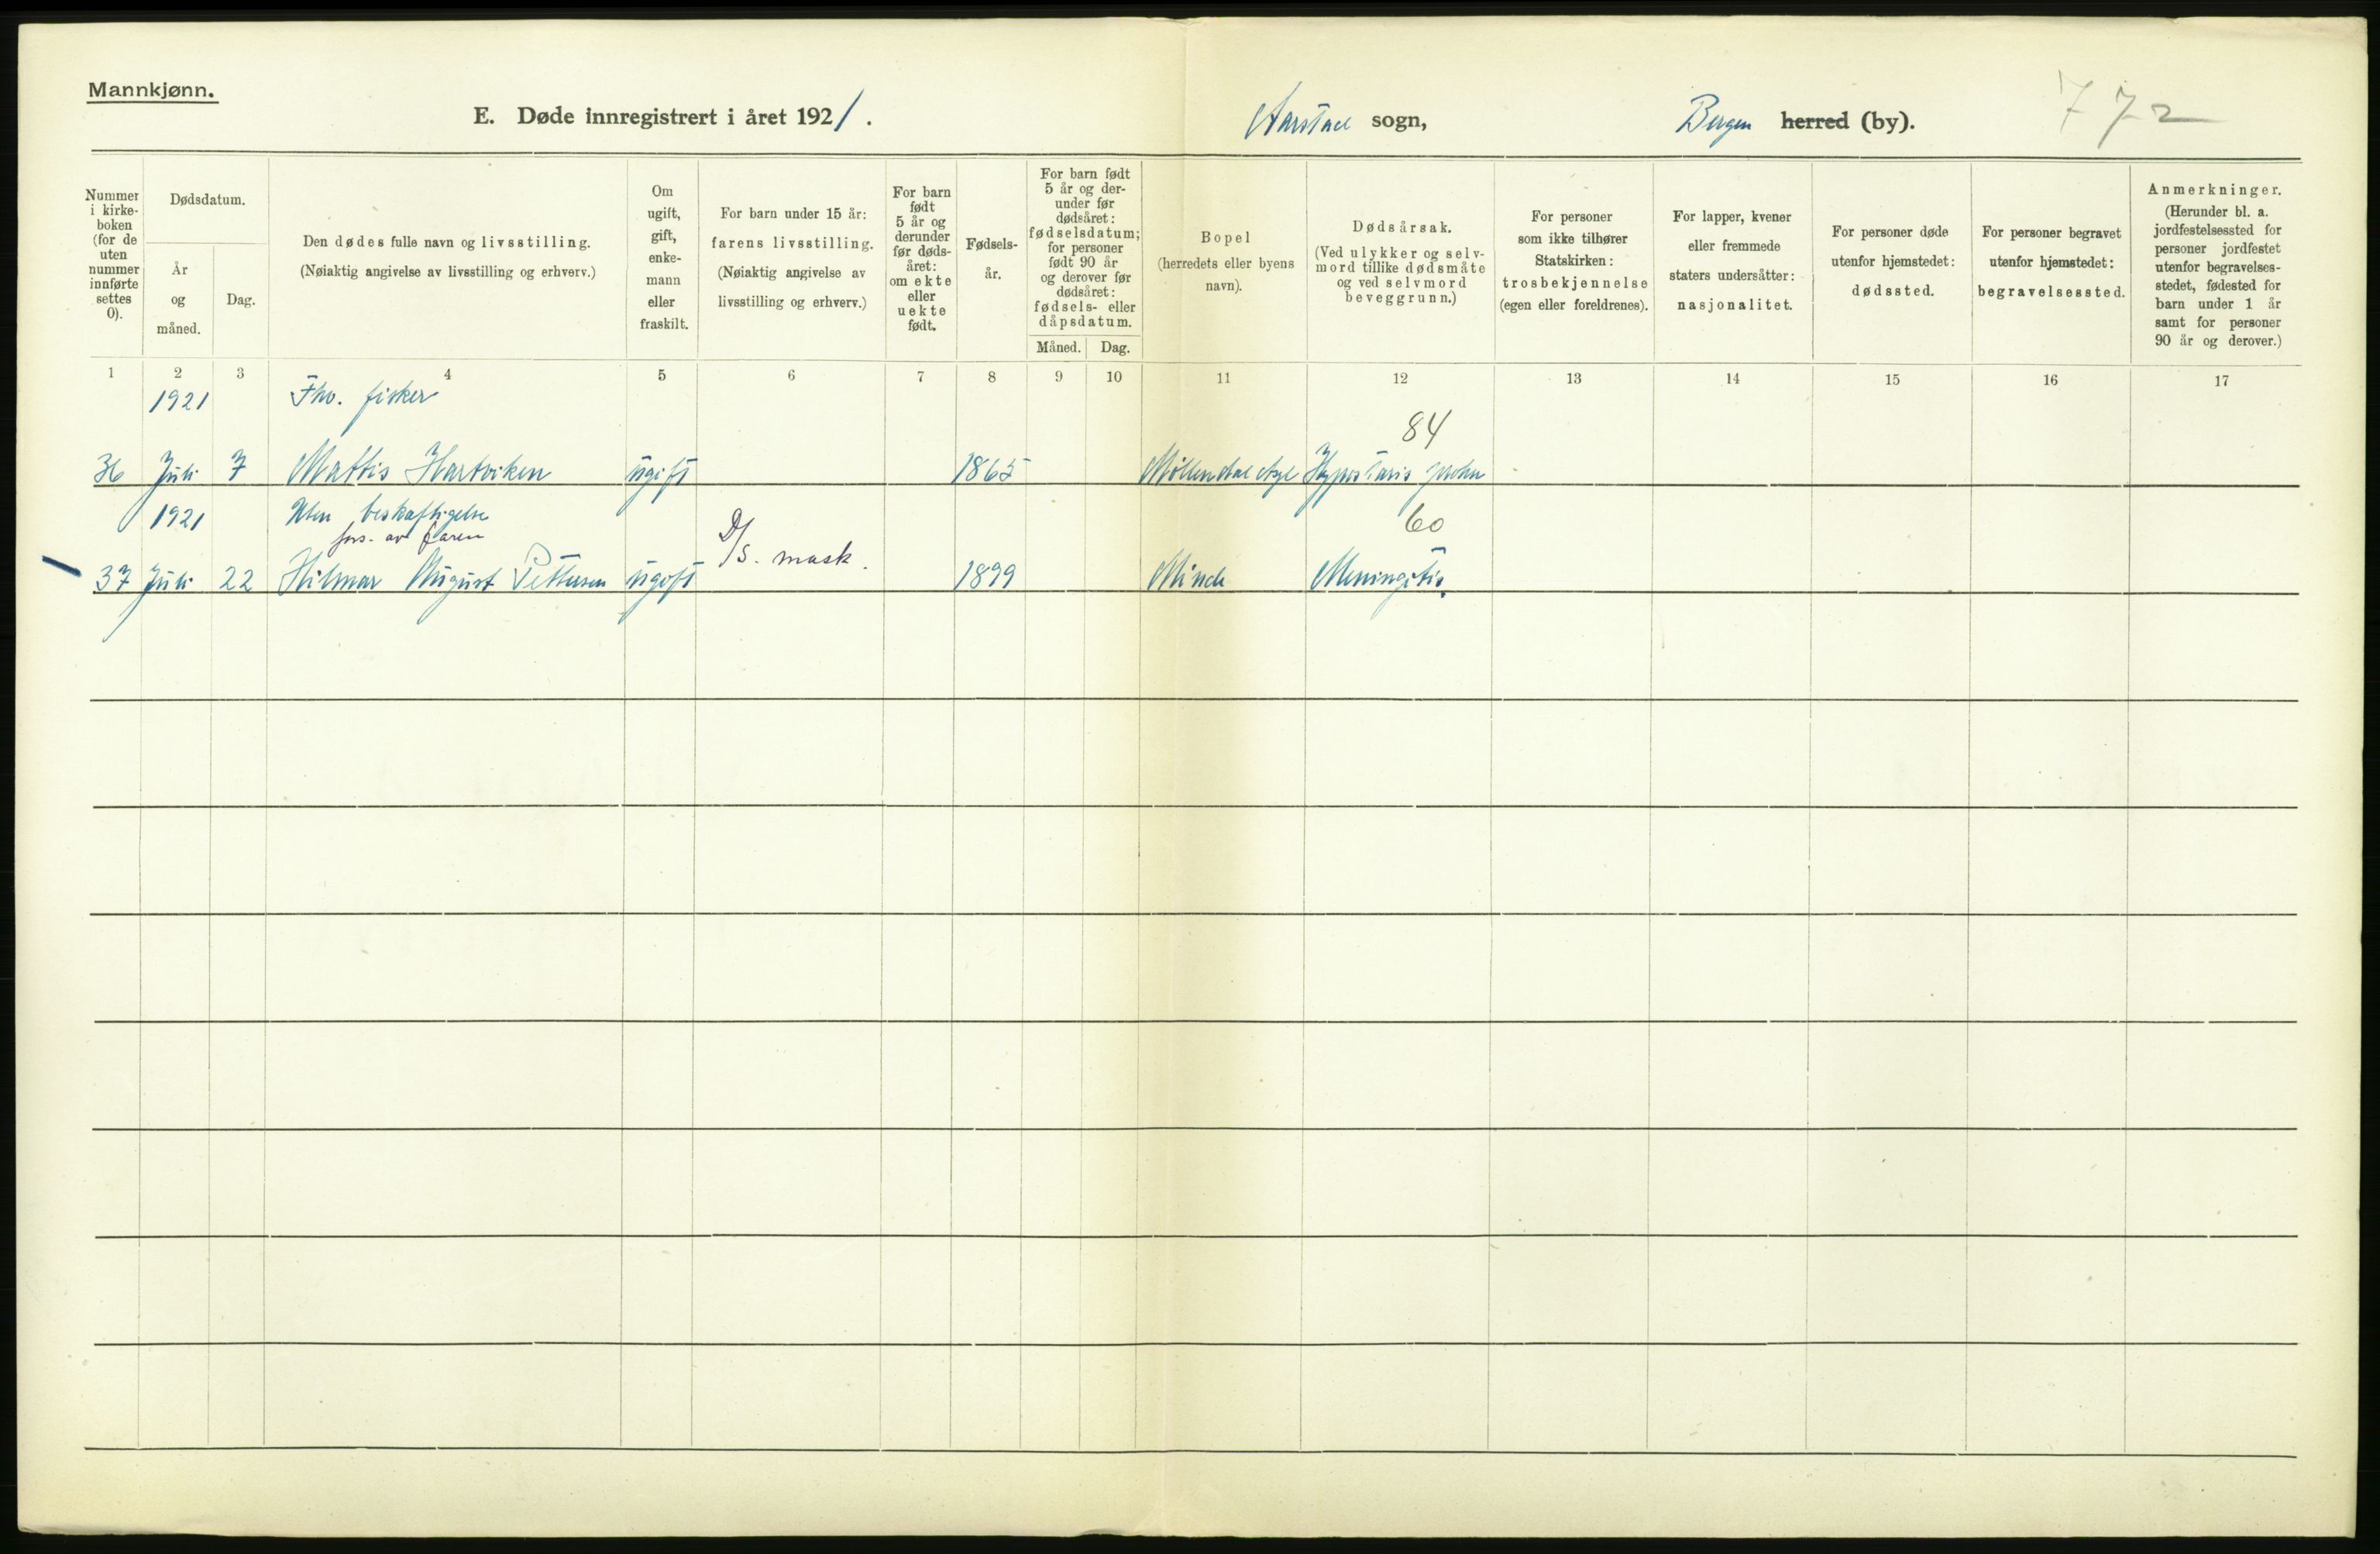 Mannkjønn.
E. Døde innregistrert i året 1921.
Aarstad sogn,
Bergen herred (by).
772
Nummer i kirke-boken (for de uten nummer innførte settes 0).
Dødsdatum.
År og måned.
Dag.
Den dødes fulle navn og livsstilling.
(Nøiaktig angivelse av livsstilling og erhverv.)
Om ugift, gift, enke-mann eller fraskilt.
For barn under 15 år:
farens livsstilling.
(Nøiaktig angivelse av
livsstilling og erhverv.)
For barn født 5 år og derunder før døds-året: om ekte eller uekte født.
Fødsels-år.
For barn født 5 år og der-under før dødsåret: fødselsdatum; for personer født 90 år og derover før dødsåret: fødsels- eller dåpsdatum.
Måned.
Dag.
Bopel
(herredets eller byens
navn).
Dødsårsak.
(Ved ulykker og selv-mord tillike dødsmåte og ved selvmord beveggrunn.)
For personer
som ikke tilhører
Statskirken:
trosbekjennelse
(egen eller foreldrenes).
For lapper, kvener
eller fremmede
staters undersåtter:
nasjonalitet.
For personer døde
utenfor hjemstedet:
dødssted.
For personer begravet
utenfor hjemstedet:
begravelsessted.
Anmerkninger.
(Herunder bl. a. jordfestelsessted for personer jordfestet utenfor begravelses-stedet, fødested for barn under 1 år samt for personer 90 år og derover.)
1 2 3 4 5 6 7 8 9 10 11 12 13 14 15 16 17
1921 Fhv. fisker
84
36 Juli 7 Mattis Hartviken ugift 1865 Møllendal Asyl
1921 Uten beskæftigelse
60
fors. av faren
D/S. mask.
37 Juli 22 Hilmar August Pettersen ugift 1899 Minde Meningitis.